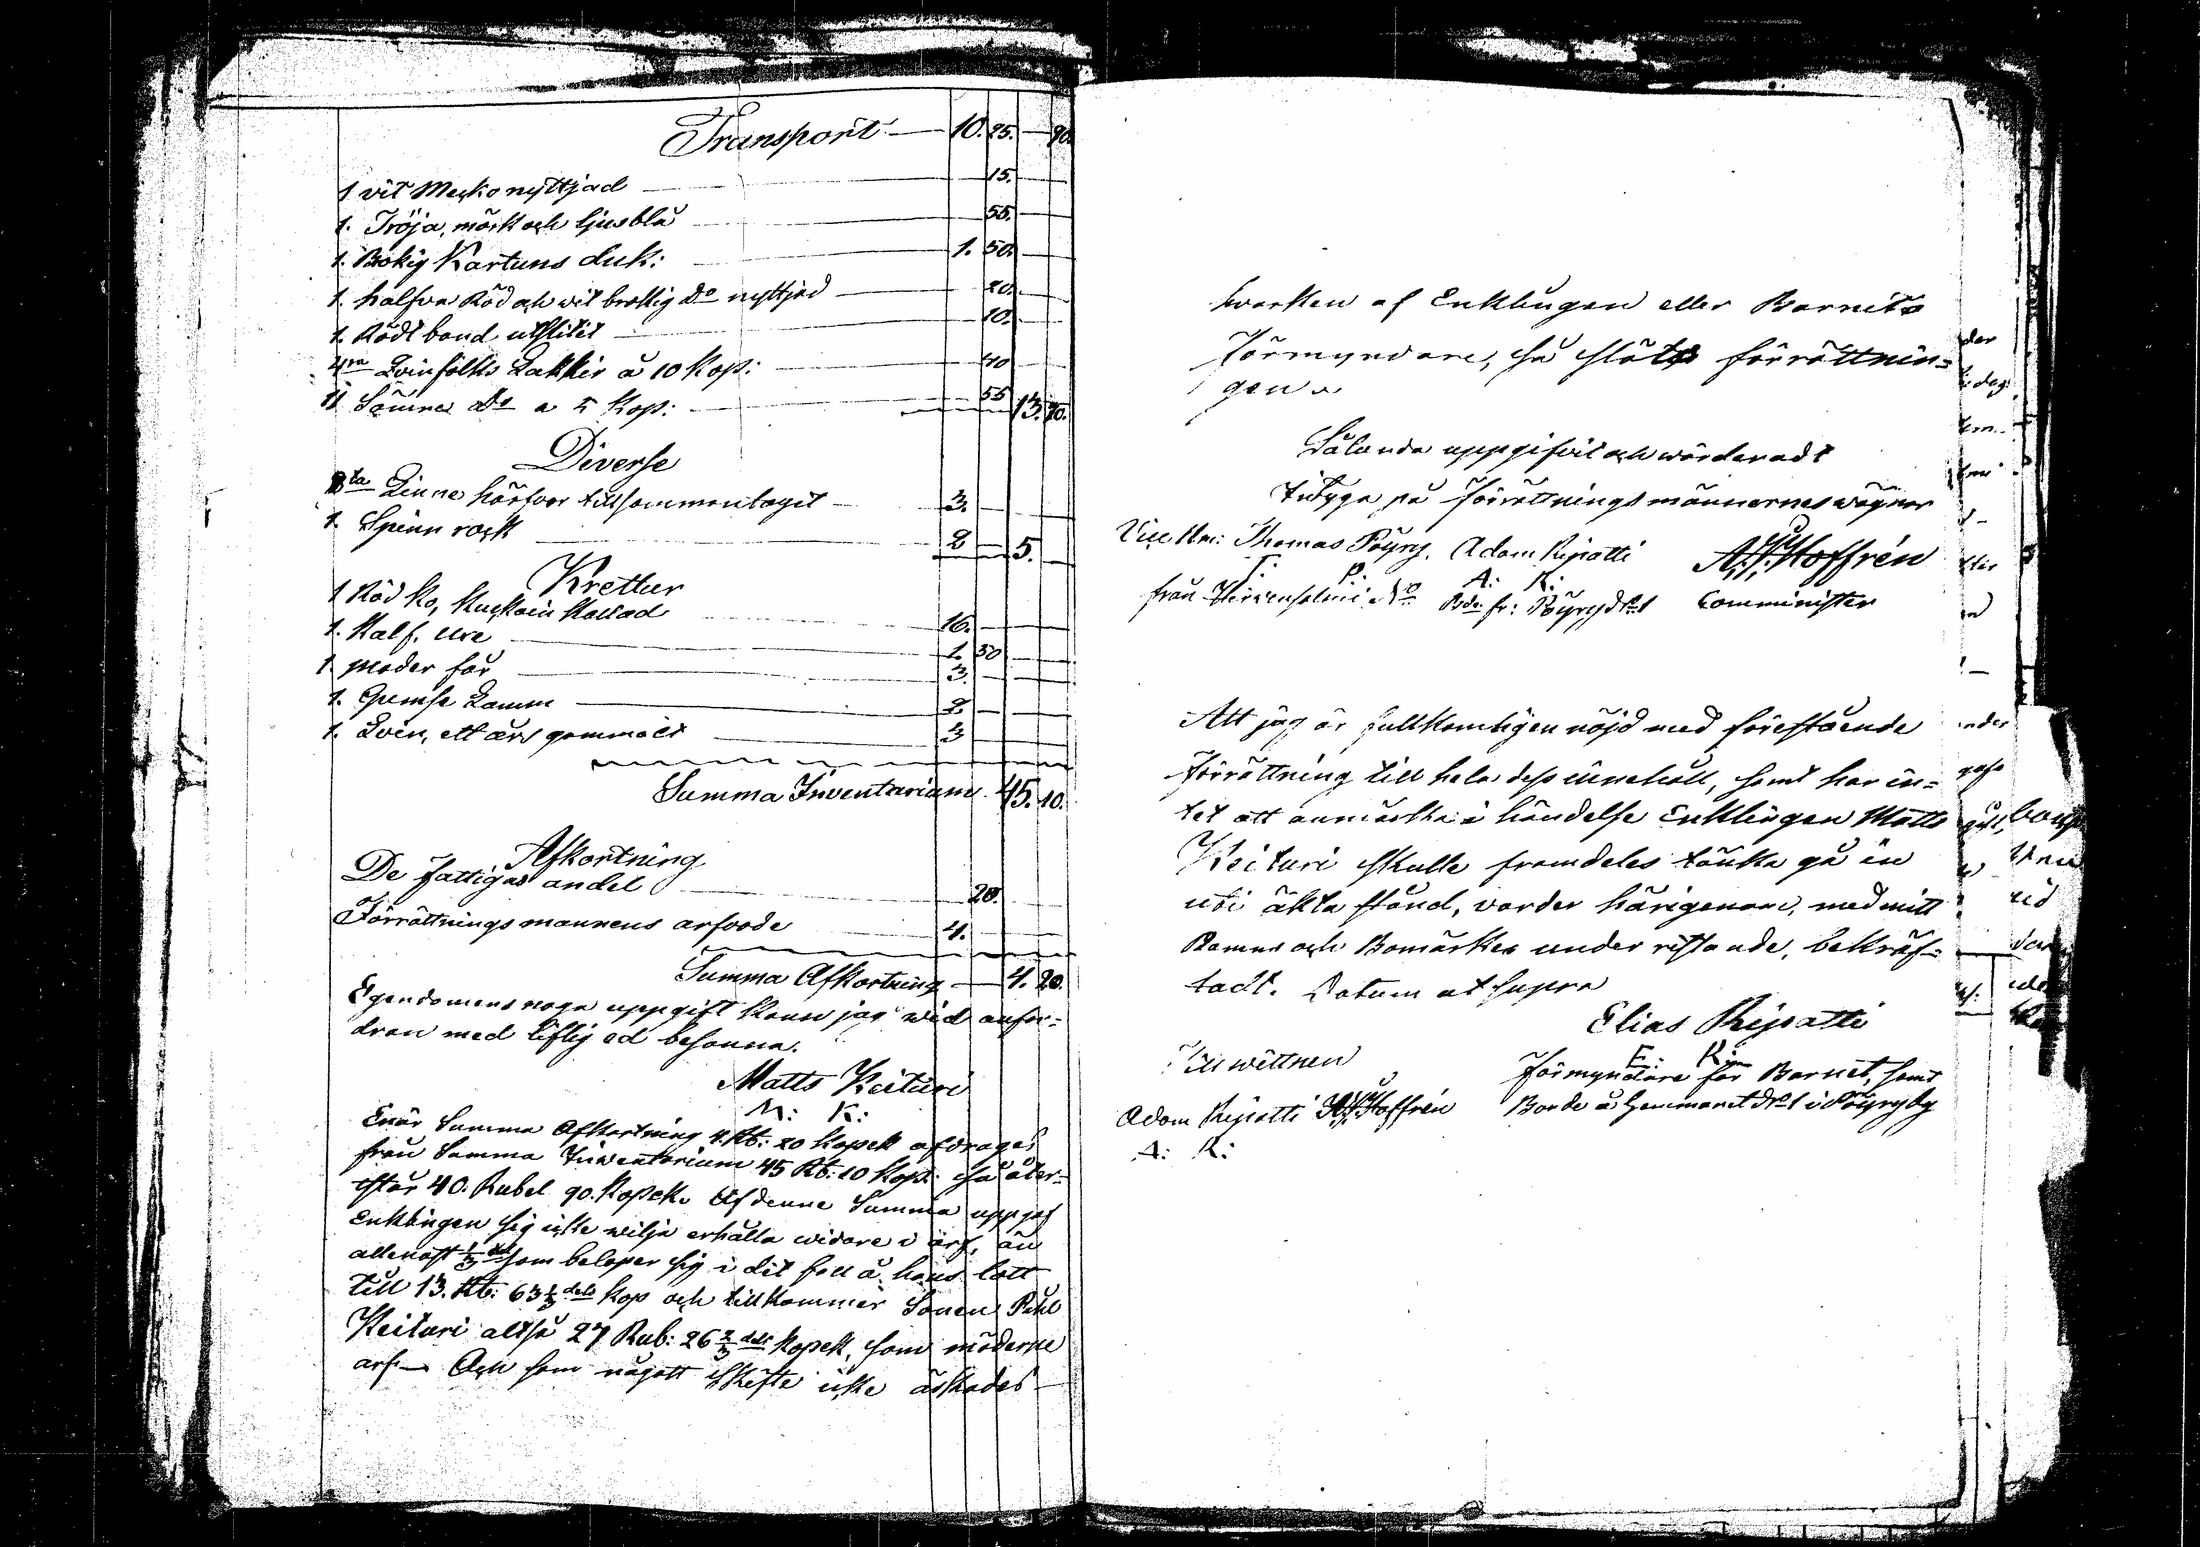 Transport — 10. 25. — 90.
1 vit Mecko nyttjad — 15.
1. Tröja, mörk och ljusblå — 55.
1. Brokig Kartuns duk: 1. 50.
1. halfva Röd och vit brokig Do nyttjad — 20.
1. Rödt band utslitit — 10.
4ra Qvinfolks Lakkir a 10 Kop: 40
11 Sämre Do a 5 Kop: 55 13. 70.
Diverse
8ta Linne härfvor tillsammantagit — 3.
1. Spinn rock 2 — 5.
Kretur
1 Röd ko, Kuckain Kallad 16.
1. Kalf. 1. 50
1. moder får 3.
1. Gumse Lamm 2 —
1. Svin, ett års gammalt 3
Summa Inventarium 45. 10.
Afkortning
De fattigas andel 20.
Förrättningsmannens arfvode 4.
Summa Afkortning — 4. 20.
Egendomens noga uppgift kann jag wid anfor-
dran med liflig ed besanna.
Matts Keituri
M: K:
Enär Summa Afkortning 4. Rb: 20 Kopek afdrages
från Summa Inventarium 45 Rb: 10 Kop: så åter-
står 40. Rubel 90. Kopek. Af denne Summa uppgaf
Enklingen sig icke vilja erhålla widare i arf, än
allenast 1/3 del som beloper sig i dit fall å hans lott
till 13. Rb: 63 1/3 dels Kop och tillkommer Sonen Pehl
Keituri altså 27 Rub: 26 2/3 dels Kopek, som möderne
arf — Och som någott Skifte icke äskades
hvarken af Enklingen eller Barnets
Förmyndare, så slöts förrättnin-
gen
Sålunda uppgifvit och wärderadt
betyga på förrättningsmännernes wägnar
Thomas Pöyry. Adam Ripatti A. J. Hoffrén
T: P: A: K:
från Hirvensalmi No Bde: fr: Pöyry No 1 Comminister
Att jag är fullkomligen nöjd med förestående
Förrättning till hela dess innehåll, samt har in-
tet att anmärka i händelse Enklingen Matts
Keituri skulle framdeles tänka gå in
uti äkta stånd, varder härigenom, med mitt
Namn och Bomärkes under ristande, bekräf-
tadt. Datum ut supra
Elias Ripatti
E: R:
Till wittnen Förmyndare för Barnet, samt
Adam Ripatti A. J. Hoffrén Bonde å Hemmanet No 1 i Pöyry by
A: K: